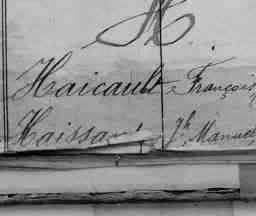 H.
Haicault François
Haissant Jh. Manuel